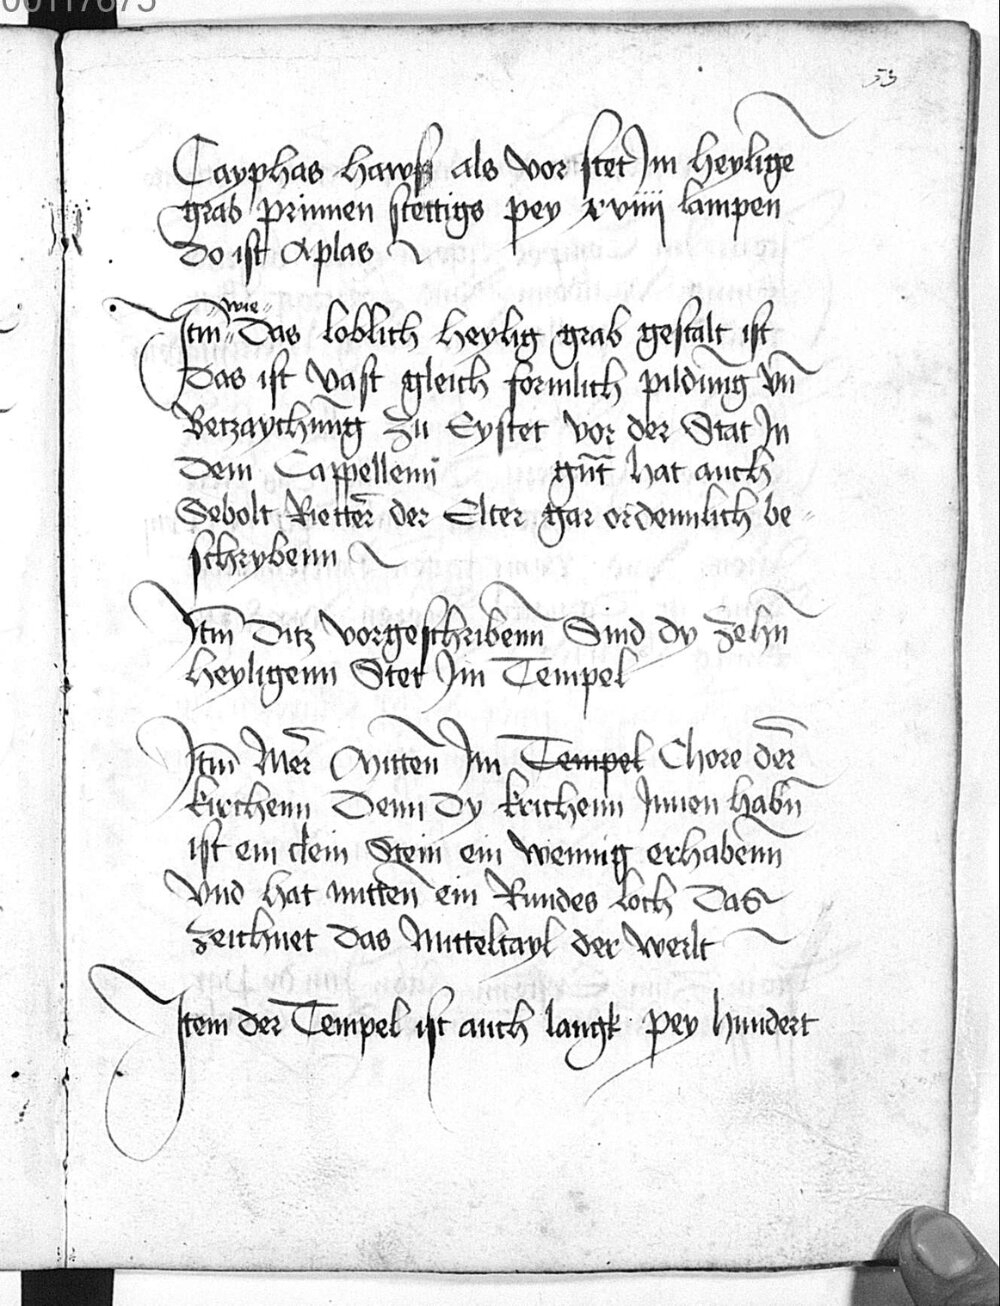 00117675
53
Cayphas hawß als vor stet Jm heylige
grab prinnen stettigs pey xviiij lampen
Do ist Aplas
wie
Jtm̄ Das loblich heylig grab gestalt ist
Das ist vast gleich formlich pildung vn̄
Betzaychnūg Zu Eystet vor der Stat Jn
dem Cappellenn gnt̄ hat auch
Sebolt Rietter̄ der Elter gar ordennlich be=
schrybenn
Jtm̄ Ditz vorgeschribenn̄ Sind dy zehn̄
heyligenn Stet Jm Tempel
Jtm̄ Mer̄ Mitten̄ Jm Tempel Chore der̄
kirchenn Denn Dy krichenn Jnnen habn̄
ist ein clein Stein ein wennig erhabenn̄
Vnd hat mitten̄ ein Rundes loch Das
Zeichnet das Mitteltayl der werlt
Jtem der Tempel ist auch langk pey hundert